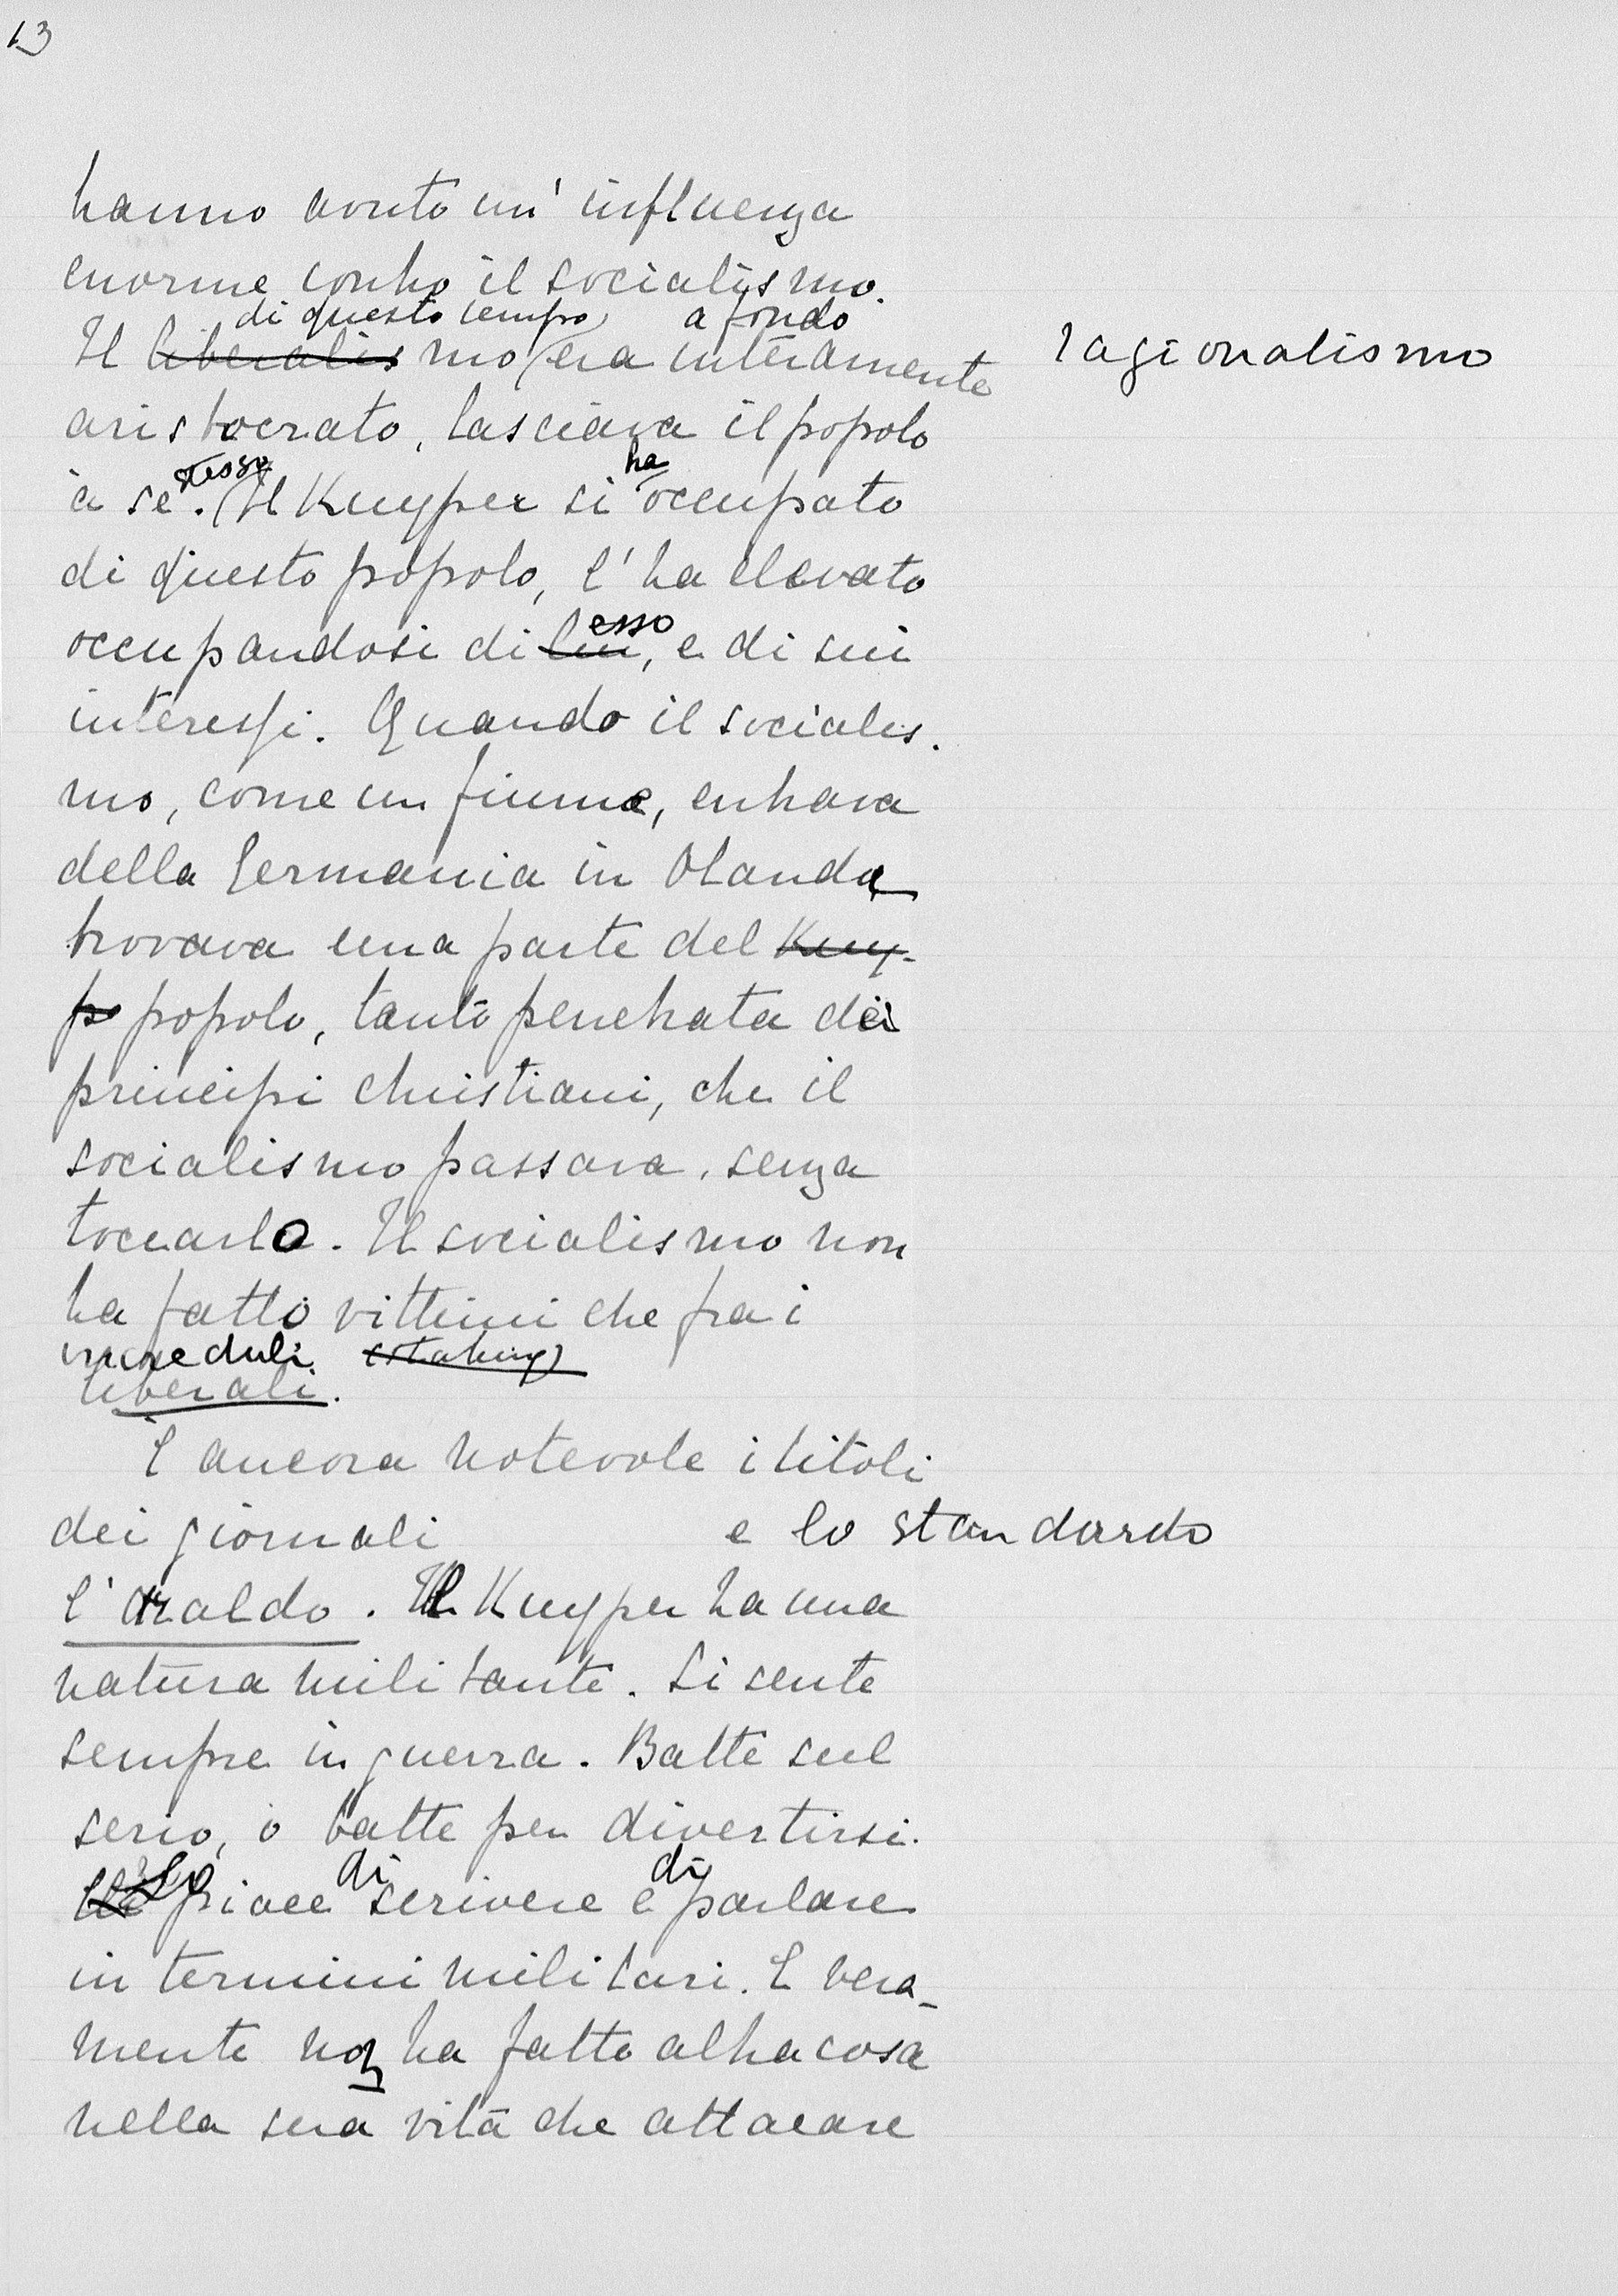 13
hanno avuto un' influenza
enorme contro il socialismo.
di questo tempo a fondo
Il liberalismo era interamente ragionalismo
aristocrato, lasciava il popolo
stesso ha
a se. Il Kuyper si occupato
di questo popolo, l'ha elevato
esso
occupandosi di lui, e di sui
interessi. Quando il socialis.
mo, come un fiume, entrava
della Germania in Olanda
trovava una parte del Kuy-
po popolo, tanto penetrata dei
principi christiani, che il
socialismo passava, senza
toccarlo. Il socialismo non
ha fatto vittimi che fra i
increduli.
liberali.
È ancora notevole i titoli
dei giornali e lo standardo
l'araldo. Il Kuyper ha una
natura militante. Si sente
sempre in guerra. Batte sul
serio, o batte per divertirsi.
di di
piace scrivere e parlare
in termini militari. E vera-
mente non ha fatto altra cosa
nella sua vita che attacare